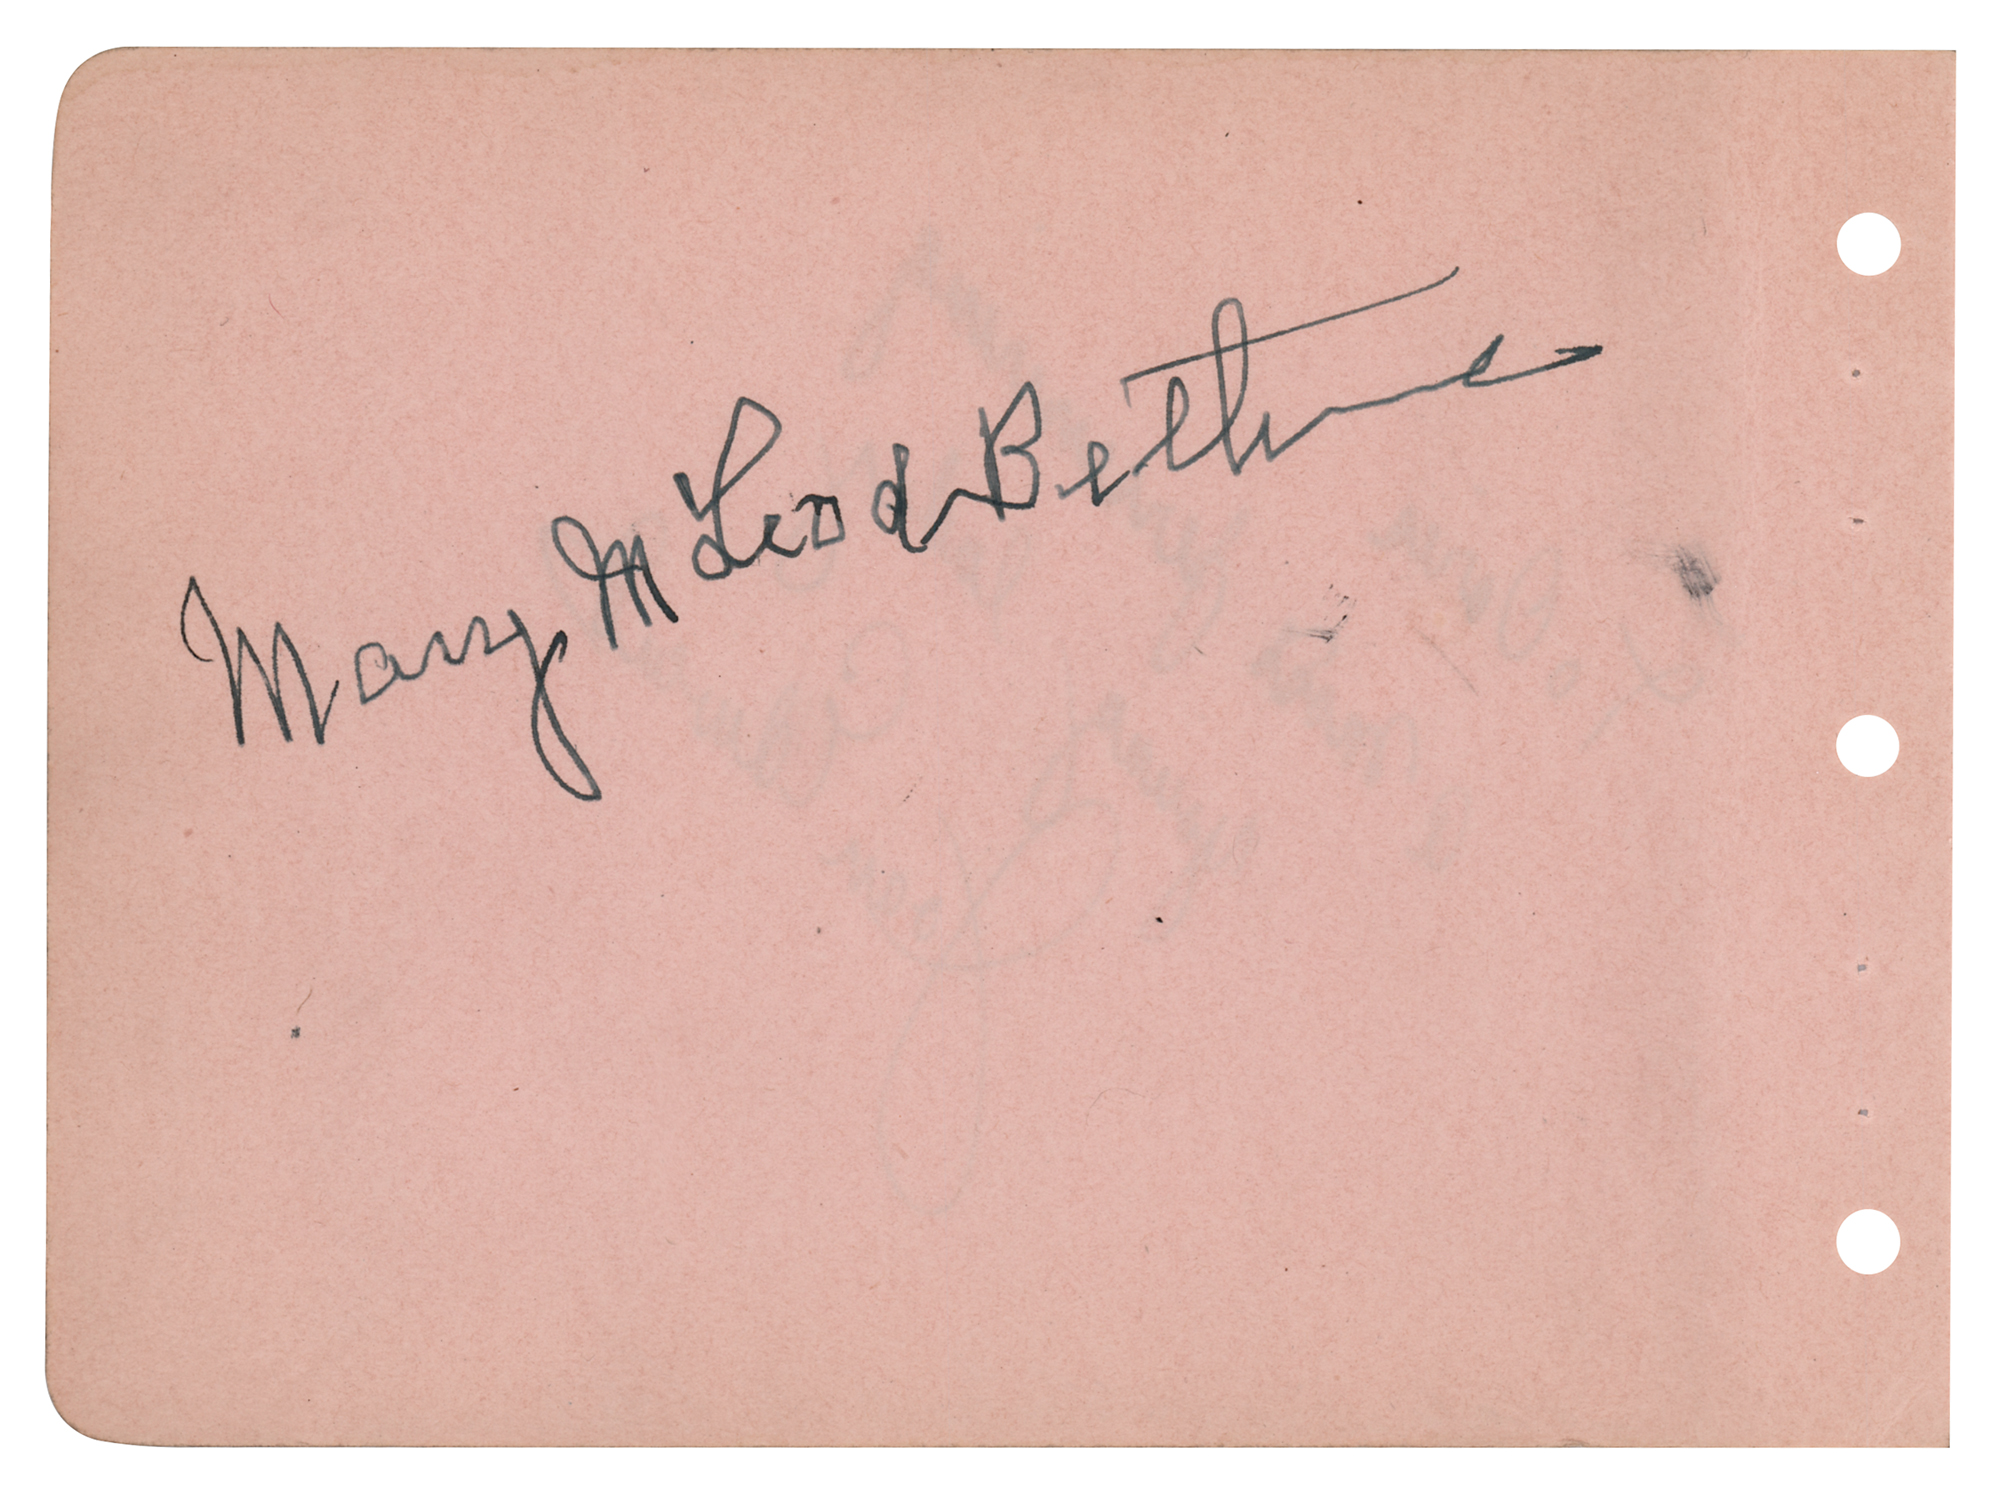 Mary M Leod Bethune